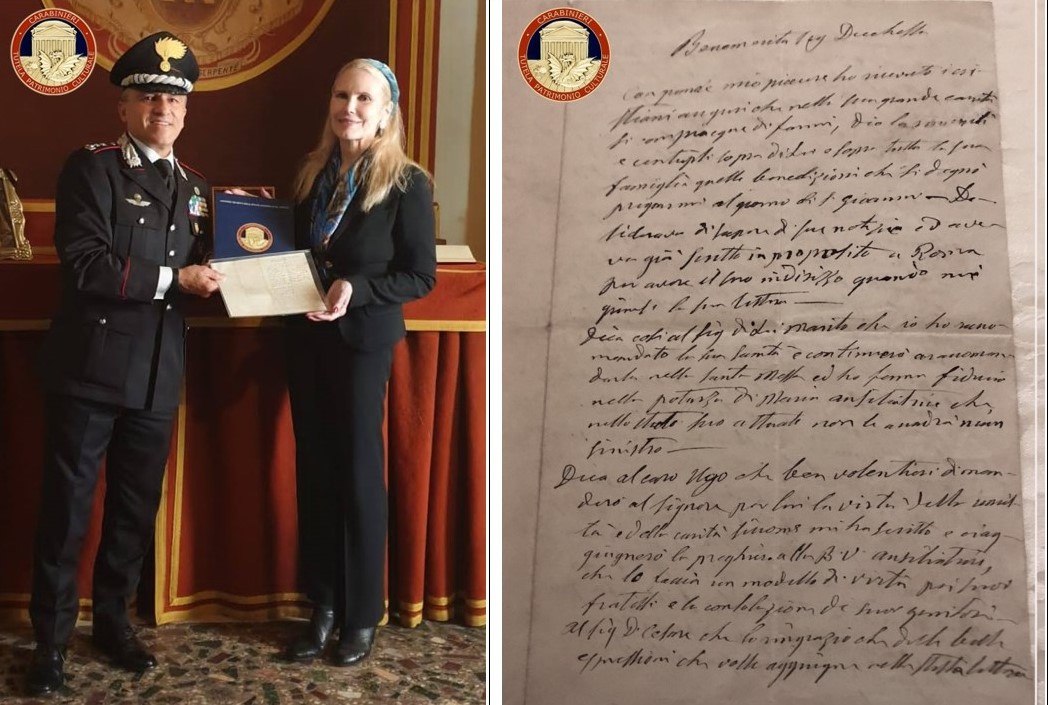 CARABINIERI
TUTELA PATRIMONIO CULTURALE
SERPENTE
CARABINIERI
TUTELA PATRIMONIO CULTURALE
Benemerita Sig Duchessa
Con mio piacere ho ricevuto i cri-
stiani auguri che nella sua grande carità
si compiacque di farmi, Dio la
e sopra di Lei e sopra tutta la sua
famiglia quelle benedizioni che si degnò
pregarmi al giorno di S. Giovanni — De-
siderava di sapere di sue notizie ed ave-
va già scritto in proposito a Roma
per avere il suo indirizzo quando mi è
giunta la sua lettera —
Dica così al sig di Lei marito che io ho racco-
mandato la sua sanità e continuerò a raccoman-
darla nella santa messa ed ho ferma fiducia
nella potenza di Maria ausiliatrice che
nello stato suo attuale non le accadrà niun
sinistro —
Dica al caro Ugo che ben volentieri diman-
derò al Signore per lui la virtù della umil-
tà e della carità siccome mi ha scritto e aggiu-
gnerò la preghiera alla B. V. ausiliatrice,
che lo faccia un modello di virtù pei suoi
fratelli e la consolazione de suoi genitori
Al sig D. Cesare che lo ringrazio che delle belle
espressioni che volle aggiugnere nella stessa lettera